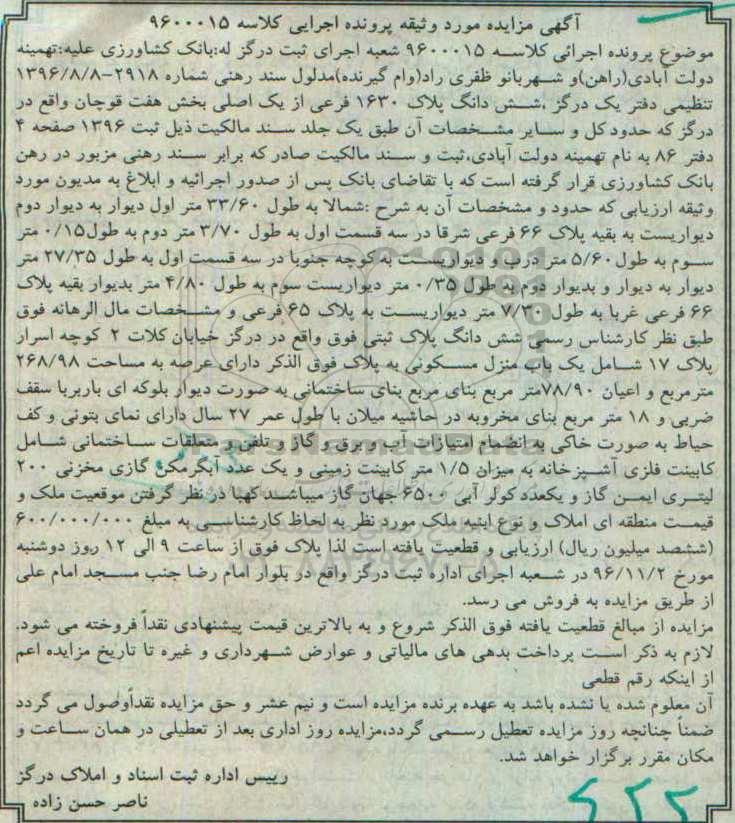 آگهی مزایده مورد وثیقه پرونده اجرایی کلاسه ۹۶۰۰۰۱۵
موضوع پرونده اجرائی کلاسه ۹۶۰۰۰۱۵ شعبه اجرای ثبت درگز له:بانک کشاورزی علیه:تهمینه
دولت آبادی(راهن)و شهربانو ظفری راد(وام گیرنده)مدلول سند رهنی شماره ۲۹۱۸-۱۳۹۶/۸/۸
تنظیمی دفتر یک درگز ،شش دانگ پلاک ۱۶۳۰ فرعی از یک اصلی بخش هفت قوچان واقع در
درگز که حدود کل و سایر مشخصات آن طبق یک جلد سند مالکیت ذیل ثبت ۱۳۹۶ صفحه ۴
دفتر ۸۶ به نام تهمینه دولت آبادی،ثبت و سند مالکیت صادر که برابر سند رهنی مزبور در رهن
بانک کشاورزی قرار گرفته است که با تقاضای بانک پس از صدور اجرائیه و ابلاغ به مدیون مورد
وثیقه ارزیابی که حدود و مشخصات آن به شرح :شمالا به طول ۳۳/۶۰ متر اول دیوار به دیوار دوم
دیواریست به بقیه پلاک ۶۶ فرعی شرقا در سه قسمت اول به طول ۳/۷۰ متر دوم به طول۰/۱۵ متر
سوم به طول۵/۶۰ متر درب و دیواریست به کوچه جنوبا در سه قسمت اول به طول ۲۷/۳۵ متر
دیوار به دیوار و بدیوار دوم به طول ۰/۳۵ متر دیواریست سوم به طول ۴/۸۰ متر بدیوار بقیه پلاک
۶۶ فرعی غربا به طول ۷/۳۰ متر دیواریست به پلاک ۶۵ فرعی و مشخصات مال الرهانه فوق
طبق نظر کارشناس رسمی شش دانگ پلاک ثبتی فوق واقع در درگز خیابان کلات ۲ کوچه اسرار
پلاک ۱۷ شامل یک باب منزل مسکونی به پلاک فوق الذکر دارای عرصه به مساحت ۲۶۸/۹۸
مترمربع و اعیان ۷۸/۹۰متر مربع بنای مربع بنای ساختمانی به صورت دیوار بلوکه ای باربربا سقف
ضربی و ۱۸ متر مربع بنای مخروبه در حاشیه میلان با طول عمر ۲۷ سال دارای نمای بتونی و کف
حیاط به صورت خاکی به انضمام امتیازات آب و برق و گاز و تلفن و متعلقات ساختمانی شامل
کابینت فلزی آشپزخانه به میزان ۱/۵ متر کابینت زمینی و یک عدد آبگرمکن گازی مخزنی ۲۰۰
لیتری ایمن گاز و یکعدد کولر آبی ۶۵۰۰ جهان گاز میباشد کهبا در نظر گرفتن موقعیت ملک و
قیمت منطقه ای املاک و نوع ابنیه ملک مورد نظر به لحاظ کارشناسی به مبلغ ۶۰۰/۰۰۰/۰۰۰
(ششصد میلیون ریال) ارزیابی و قطعیت یافته است لذا پلاک فوق از ساعت ۹ الی ۱۲ روز دوشنبه
مورخ ۹۶/۱۱/۲ در شعبه اجرای اداره ثبت درگز واقع در بلوار امام رضا جنب مسجد امام علی
از طریق مزایده به فروش می رسد.
مزایده از مبالغ قطعیت یافته فوق الذکر شروع و به بالاترین قیمت پیشنهادی نقداً فروخته می شود.
لازم به ذکر است پرداخت بدهی های مالیاتی و عوارض شهرداری و غیره تا تاریخ مزایده اعم
از اینکه رقم قطعی
آن معلوم شده یا نشده باشد به عهده برنده مزایده است و نیم عشر و حق مزایده نقداًوصول می گردد
ضمناً چنانچه روز مزایده تعطیل رسمی گردد،مزایده روز اداری بعد از تعطیلی در همان ساعت و
مکان مقرر برگزار خواهد شد.
رییس اداره ثبت اسناد و املاک درگز
ناصر حسن زاده